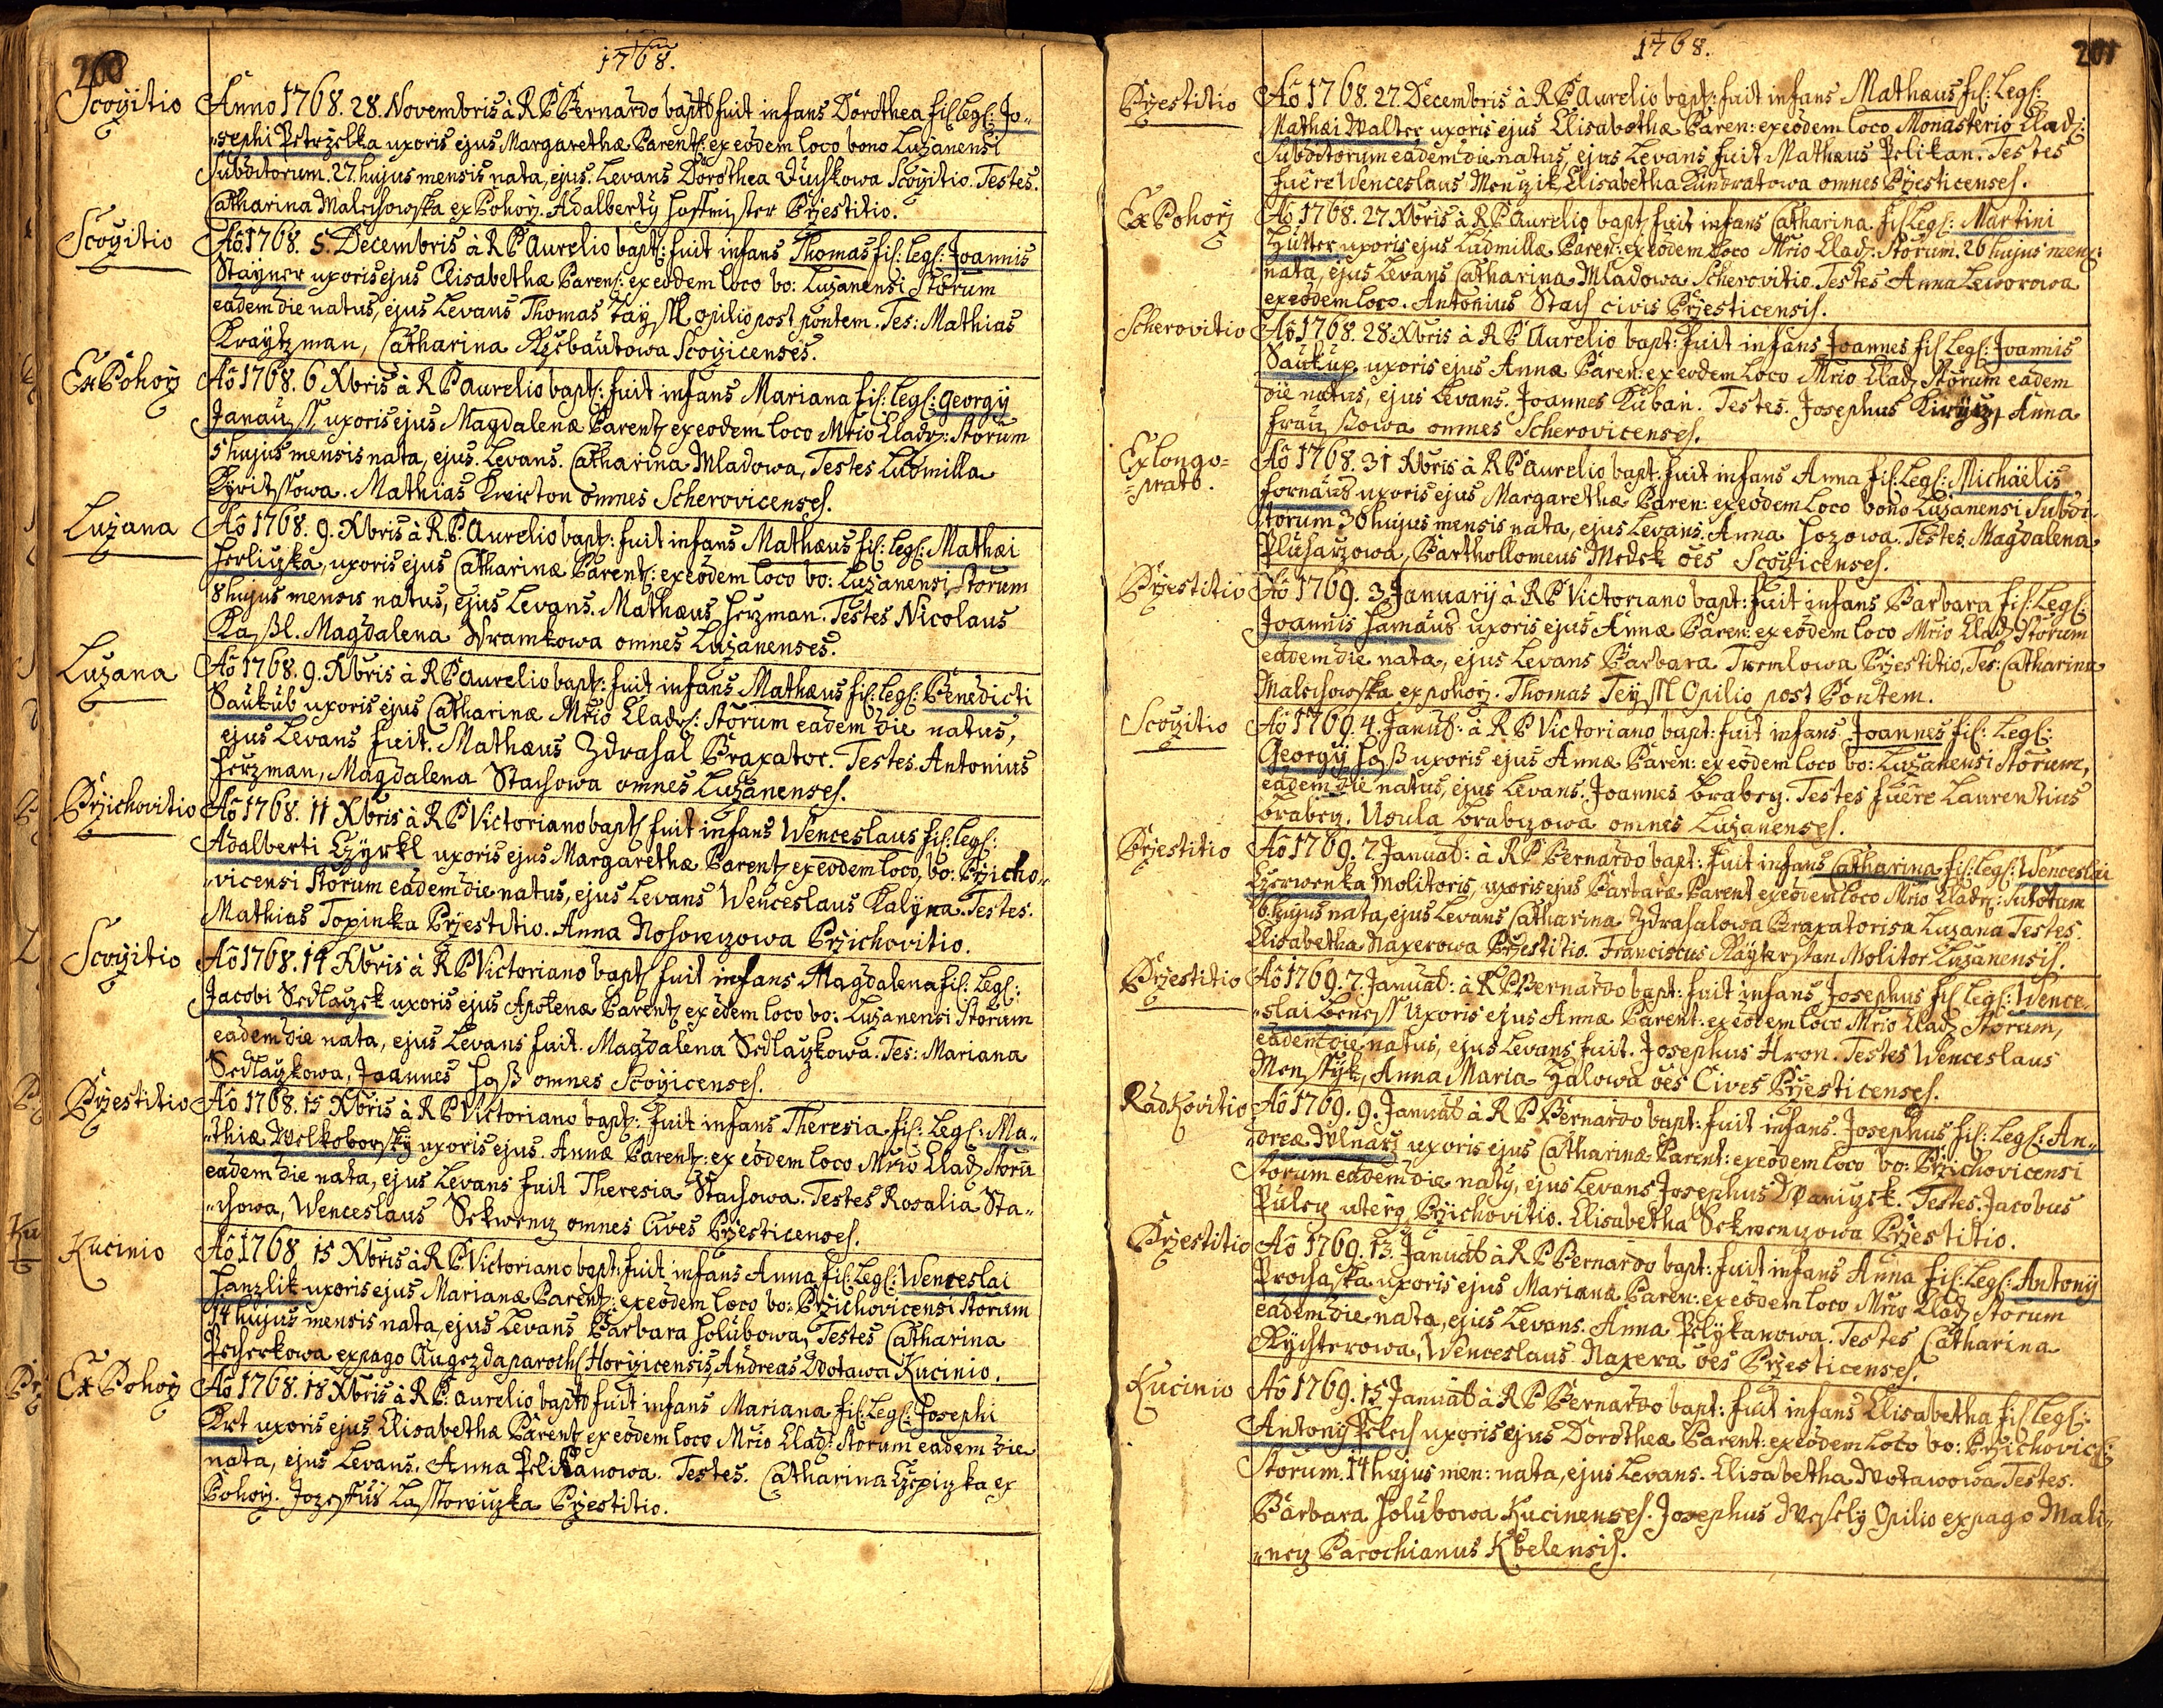 200
1768.
Scoȷitio
Anno 1768. 28. Novembris à R P Bernardo bapt: fuit infans Dorothea fil: Leg: Jo-
sephi Petrzelka uxoris ejus Margarethæ Parent: ex eodem loco bono Luzanensi
Subditorum. 27. hujus mensis nata, ejus Levans Dorothea Duchkowa Scoȷitio. Testes.
Catharina Malechowska ex Pohorz. Adalberty Hoffmister Przestitio.
Scoȷitio
Aõ 1768. 5. Decembris à R P Aurelio bapt: fuit infans Thomas fil: Leg: Joannis
Stayner uxoris ejus Elisabethæ Parent: ex eodem loco bo: Luzanensi Storum
eadem die natus, ejus Levans Thomas Tayssl opilio post pontem. Tes: Mathias
Kraytzman, Catharina Scoȷicenses.
Ex Pohorz
Aõ 1768. 6 Xbris à R P Aurelio bapt: fuit infans Mariana fil: Leg: Georgij
Janauss uxoris ejus Magdalenæ Parent ex eodem loco Mrio Cladr: Storum
5 hujus mensis nata, ejus Levans. Catharina Mladowa, Testes Ludmilla
Kyritssowa. Mathias Kwicton omnes Scherovicenses.
Luzana
Aõ 1768. 9. Xbris à R P. Aurelio bapt: fuit infans Mathæus fil: Leg: Mathæi
Herliczka, uxoris ejus Catharinæ Parent: ex eodem loco bo: Luzanensi Storum
8 hujus mensis natus, ejus Levans. Mathæus Herzman. Testes Nicolaus
Kassl. Magdalena Wramkowa omnes Luzanenses.
Luzana
Aõ 1768. 9. Xbris à R P Aurelio bapt: fuit infans Mathæus fil: Leg: Benedicti
Saukub uxoris ejus Catharinæ Mrio Cladr: Storum eadem die natus,
ejus Levans fuit. Mathæus Zdrahal Braxator. Testes. Antonius
Herzman, Magdalena Stachowa omnes Luzanenses.
Przichovitio
Aõ 1768. 11 Xbris à R P Victoriano bapt: fuit infans Wenceslaus fil: Leg:
Adalberti Czyrkl uxoris ejus Margarethæ Parent ex eodem loco, bo: Przicho-
vicensi Storum eadem die natus, ejus Levans Wenceslaus Kalyna. Testes.
Mathias Topinka Przestitio. Anna Nohoreczowa Przichovitio.
Scoȷitio
Aõ 1768. 14 Xbris à R P Victoriano bapt: fuit infans Magdalena fil: Leg:
Jacobi Sedlaczek uxoris ejus Apolenæ Parent ex eodem loco bo: Luzanensi Storum
eadem die nata, ejus Levans fuit. Magdalena Sedlaczkowa. Tes: Mariana
Sedlaczkowa, Joannes Hoss omnes Scoȷicenses.
Przestitio
Aõ 1768. 15 Xbris à R P Victoriano bapt: fuit infans Theresia fil: Leg: Ma-
thiæ Welkoborsky uxoris ejus Annæ Parent: ex eodem loco Mrio Cladr Storũ
eadem die nata, ejus Levans fuit Theresia Stachowa. Testes Rosalia Sta-
chowa, Wenceslaus Sekwencz omnes Cives Przesticenses.
Kucinio
Aõ 1768 15 Xbris à R P Victoriano bapt: fuit infans Anna fil: Leg: Wenceslai
Hanzlik uxoris ejus Marianæ Parent: ex eodem loco bo: Przichovicensi Storum
14 hujus mensis nata, ejus Levans Barbara Holubowa, Testes Catharina
Pecherkowa ex pago Augezda paroch: Horȷicensis, Andreas Wotawa Kucinio.
Ex Pohorz
Aõ 1768. 18 Xbris à R P. Aurelio bapt: fuit infans Mariana fil: Leg: Josephi
Krt uxoris ejus Elisabethæ Parent ex eodem loco Mrio Clad: Storum eadem die
nata, ejus Levans. Anna Pelikanowa. Testes. Catharina Czepiczka ex
Pohorz. Jozeffus Lasstowiczka Przestitio.
1768.
201
Przestitio
Aõ 1768. 27. Decembris à R P Aurelio bapt: fuit infans Mathæus fil: Leg:
Mathæi Walter uxoris ejus Elisabethæ Paren: ex eodem loco Monasterio Clad:
Subditorum eadem die natus, ejus Levans fuit Mathæus Pelikan. Testes
fuere Wenceslaus Menczik, Elisabetha Kundratowa omnes Przesticenses.
Ex Pohorz
Aõ 1768. 27 Xbris à R P Aurelio bapt: fuit infans Catharina fil: Leg: Martini
Hutter uxoris ejus Ludmillæ Paren: ex eodem loco Mrio Clad: Storum. 26 hujus mens:
nata, ejus Levans Catharina Mladowa Scherovitio. Testes Anna Leworowa
ex eodem loco. Antonius Stach civis Przesticensis.
Scherovitio
Aõ 1768. 28 Xbris à R P Aurelio bapt: fuit infans Joannes fil: Leg: Joannis
Saukup uxoris ejus Annæ Paren: ex eodem loco Mrio Cladr Storum eadem
die natus, ejus Levans. Joannes Kuban. Testes. Josephus Kirycz, Anna
Fraussowa omnes Scherovicenses.
Ex longo-
prato.
Aõ 1768. 31 Xbris à R P Aurelio bapt: fuit infans Anna fil: Leg: Michaëlis
Fornaus uxoris ejus Margarethæ Paren: ex eodem loco bono Luzanensi Subdi-
torum 30 hujus mensis nata, ejus Levans. Anna Hozowa. Testes. Magdalena
Pluharzowa, Barthollomeus Medek oẽs Scoȷicenses.
Przestitio
Aõ 1769. 3. Januarij à R P Victoriano bapt: fuit infans Barbara fil: Leg:
Joannis Hamaus uxoris ejus Annæ Paren: ex eodem loco Mrio Cladr Storum
eadem die nata, ejus Levans Barbara Tremlowa Przestitio, Tes: Catharina
Malechowska ex pohorz. Thomas Teyssl Opilio post Pontem.
Scoȷitio
Aõ 1769. 4. Januar: à R P Victoriano bapt: fuit infans Joannes fil: Leg:
Georgij Hoss uxoris ejus Annæ Paren: ex eodem loco bo: Luzanensi Storum,
eadem die natus, ejus Levans. Joannes Brabecz. Testes fuere Laurentius
Brabecz. Usula Brabczowa omnes Luzanenses.
Przestitio
Aõ 1769. 7. Januar: à R P Bernardo bapt: fuit infans Catharina fil: Leg: Wenceslai
Czerwenka Molitoris, uxoris ejus Barbaræ Parent ex eodem loco Mrio Cladr:
6. hujus nata, ejus Levans Catharina Zdrahalowa Braxatorisa Luzana Testes.
Elisabetha Naxerowa Przestitio. Franciscus Molitor Luzanensis.
Przestitio
Aõ 1769. 7. Januar: à R P Bernardo bapt: fuit infans Josephus fil: Leg: Wence-
slai Beness Uxoris ejus Annæ Parent: ex eodem loco Mrio Cladr Storum,
eadem die natus, ejus Levans fuit. Josephus Hron. Testes Wenceslaus
Menssyk, Anna Maria Halowa oẽs Cives Przesticenses.
Radkovitio
Aõ 1769. 9. Januar à R P Bernardo bapt: fuit infans. Josephus fil: Leg: An-
dreæ Wlnarz uxoris ejus Catharinæ Parent: ex eodem loco bo: Przichovicensi
Storum eadem die naty, ejus Levans Josephus Waniczek. Testes. Jacobus
Pulcz uterq Przichovitio. Elisabetha Sekwenczowa Przestitio.
Przestitio
Aõ 1769. 13. Januar à R P Bernardo bapt: fuit infans Anna fil: Leg: Antonij
Prochaska uxoris ejus Marianæ Paren: ex eodem loco Mrio Cladr Storum
eadem die nata, ejus Levans. Anna Pelykanowa. Testes Catharina
Rychterowa, Wenceslaus Naxera oẽs Przesticenses.
Kucinio
Aõ 1769. 15 Januar à R P Bernardo bapt: fuit infans Elisabetha fil: Leg:
Antonij Pelech uxoris ejus Dorotheæ Parent: ex eodem loco bo: Przichovic:
Storum. 14 hujus men: nata, ejus Levans. Elisabetha Wotawowa Testes.
Barbara Holubowa Kucinenses. Josephus Wesely Opilio ex pago Mali-
necz Parochianus Kbelensis.